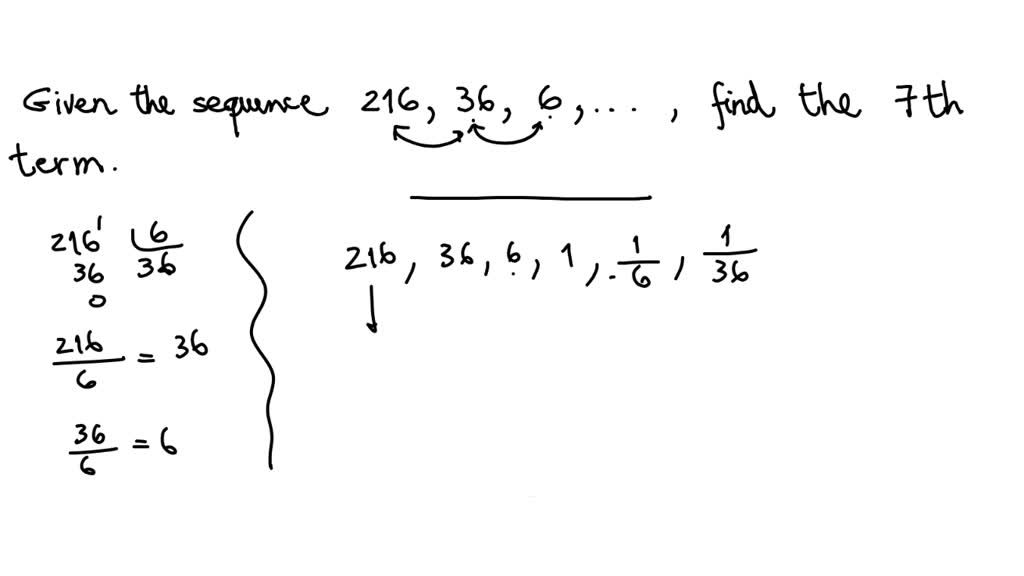 Given the sequence 216, 36, 6, ..., find the 7th
term.
216' 6
36 36
0
216/6 = 36
36/6 = 6
216, 36, 6, 1, 1/6, 1/36